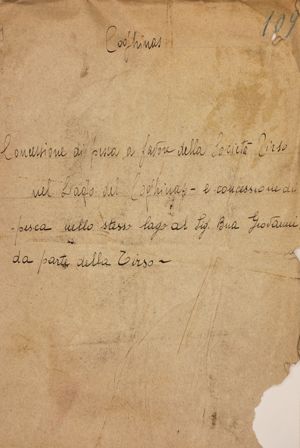 Coghinas
Concessione di pesca a favore della Società Tirso
nel Lago del Coghinas - e concessione di
pesca nello stesso lago al Sig. Bua Giovanni
da parte della Tirso -